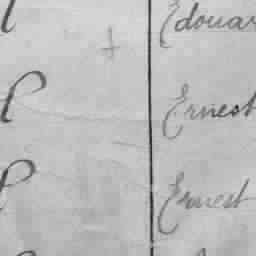 Edouar
P Ernest
P Ernest